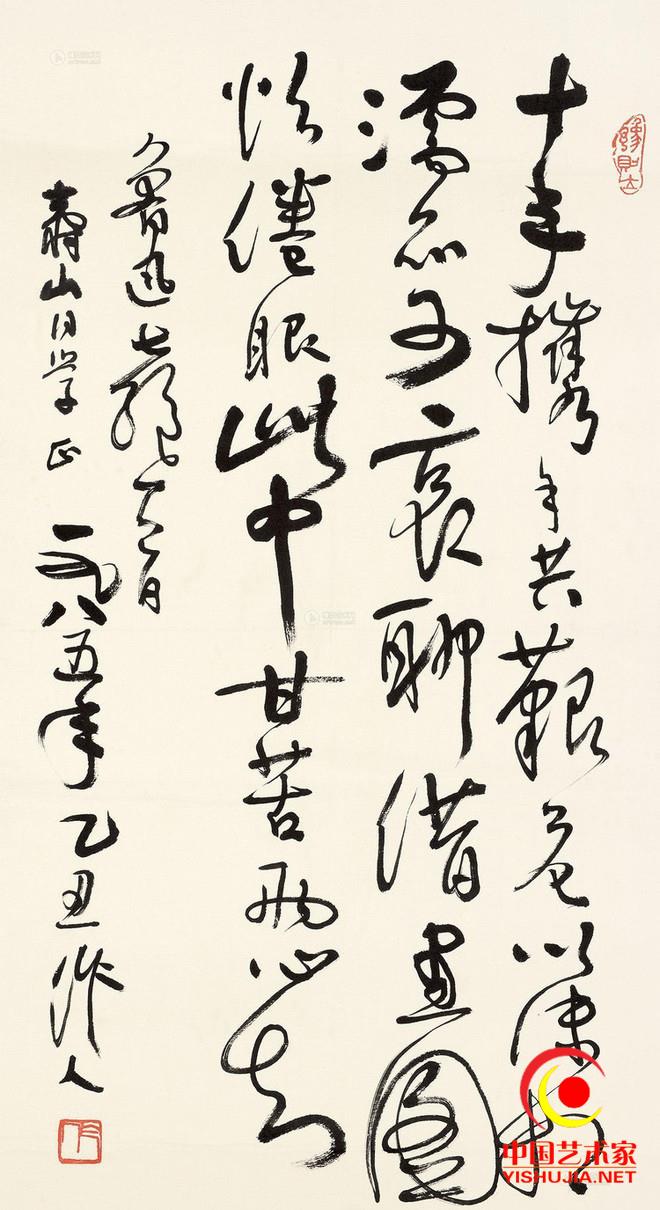 豫則立
十年攜手共艱危以沫相
濡亦可哀聊借畫圖
怡倦眼此中甘苦兩心知
魯迅七絕一首
壽山同學正 一九八五年乙丑 作人
中国艺术家
YISHUJIA.NET